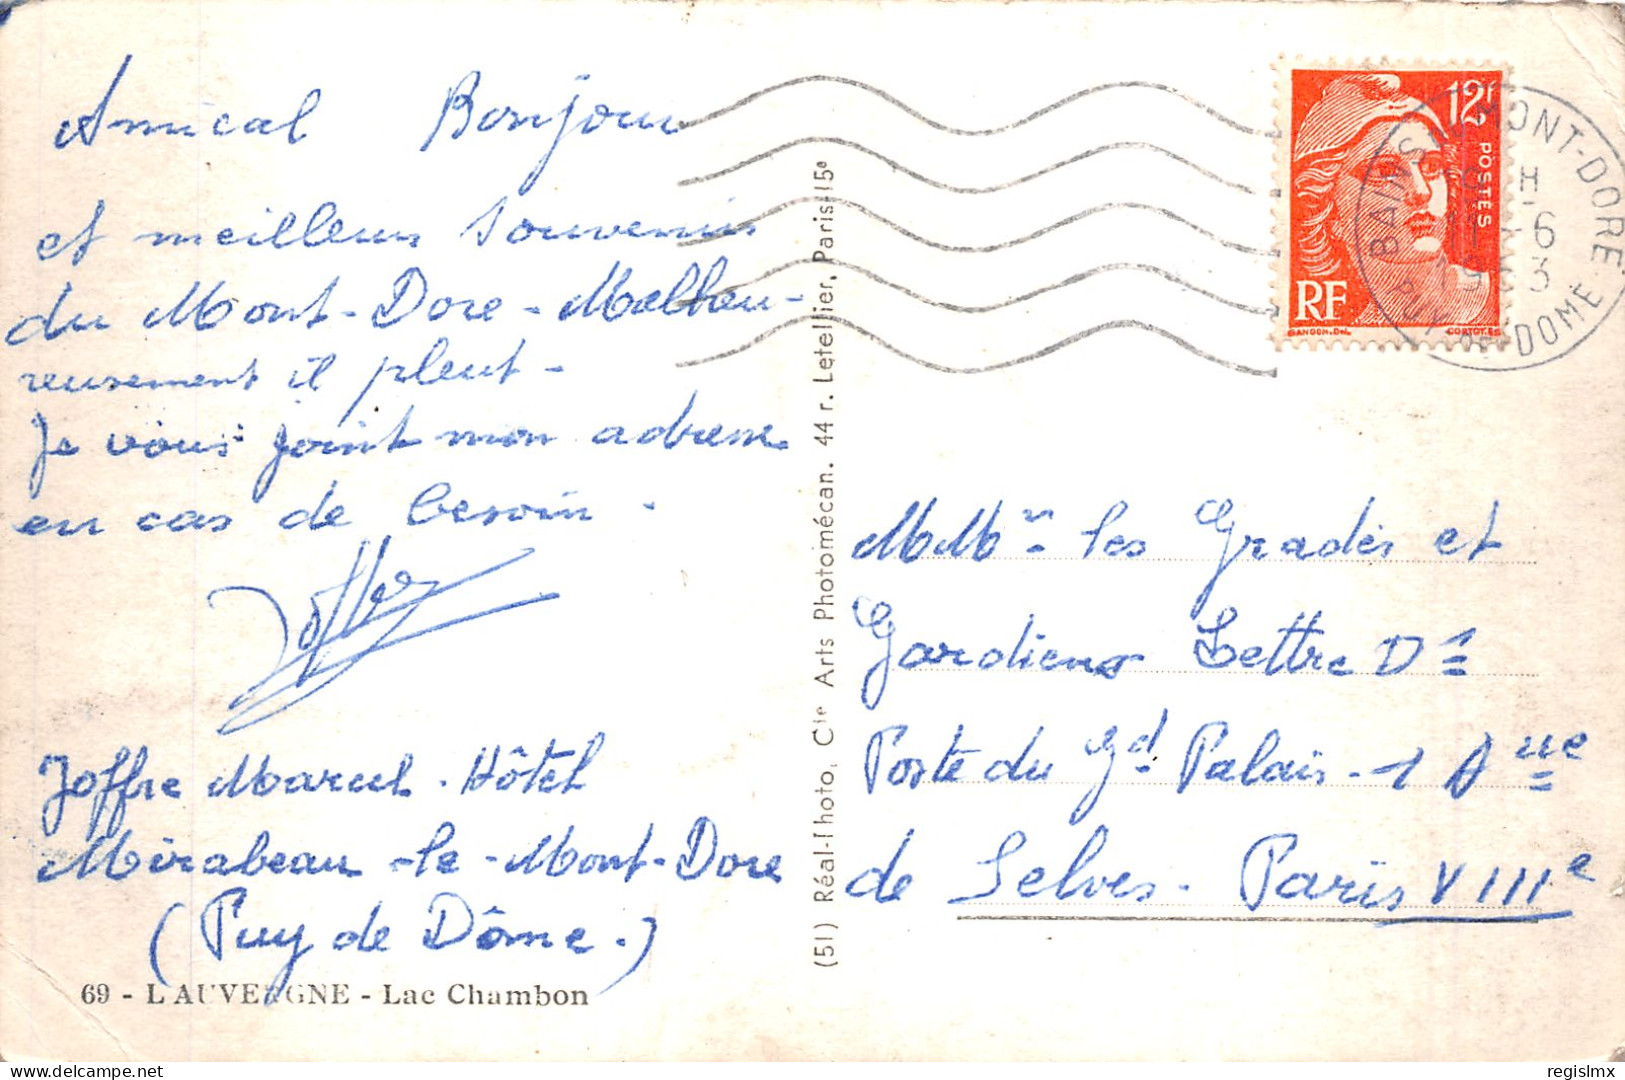 Amical Bonjour
et meilleurs Souvenirs
du Mont-Dore - Malheu-
reusement il pleut -
Je vous joint mon adresse
en cas de besoin.
Joffre
Joffre Marcel. Hôtel
Mirabeau - le - Mont-Dore
(Puy de Dôme.)
69 - L'AUVERGNE - Lac Chambon
(51) Réal-Photo, Cie Arts Photomécan. 44 r. Letellier, Paris-15e
12f
POSTES
RF
GANDON.DEL
CORTOT.SC
MONT-DORE
PUY-DE-DOME
H
-6
1953
MMrs les Gradés et
Gardiens Lettre D 1
Poste du Gd Palais - 1 Aue
de Selves - Paris VIIIe
regislmx
delcampe.net